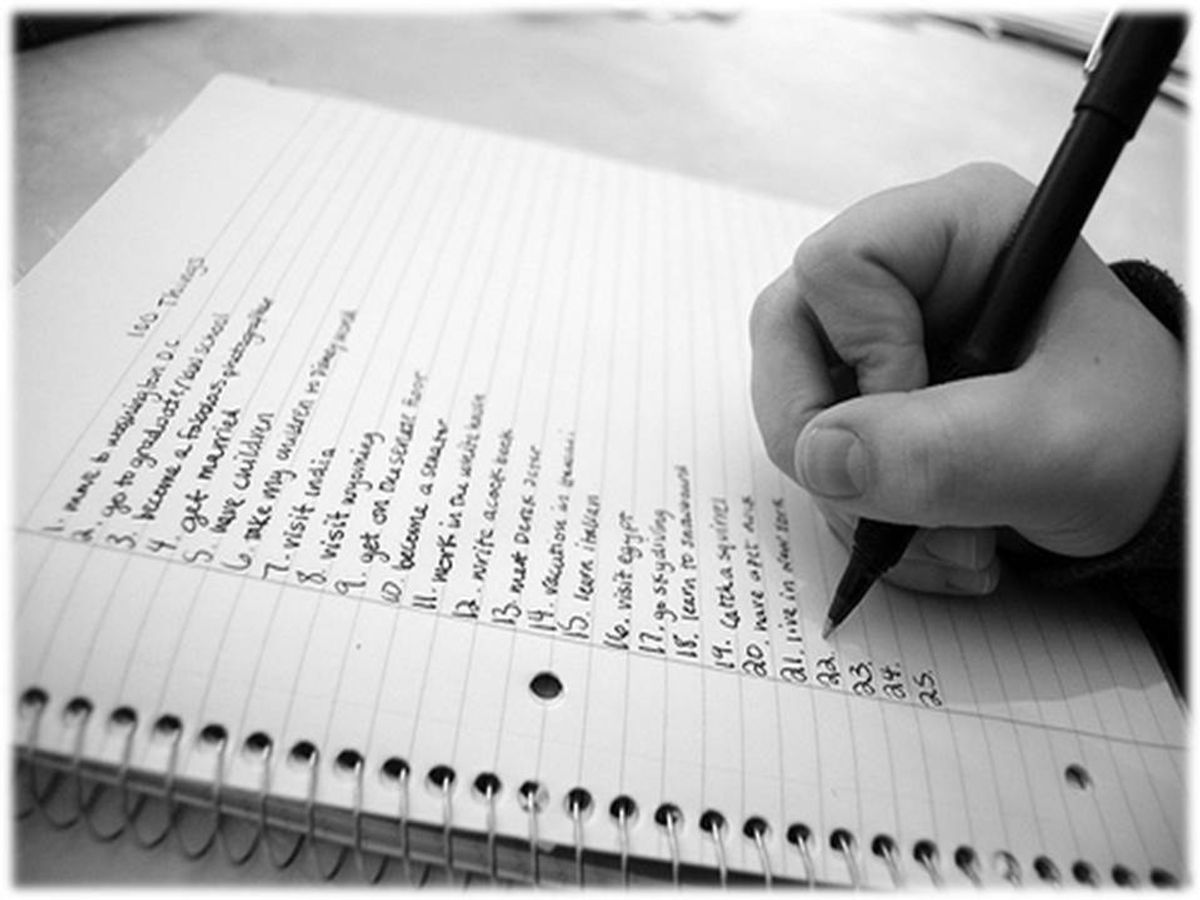 100 Things
1. move to washington D.C
2. go to graduate/law school
3. become a fabulous photographer
4. get married
5. have children
6. take my children to disney world
7. visit india
8. visit wyoming
9. get on the senate floor
10. become a senator
11. work in the white house
12. write a cook book
13. meet Derek Jeter
14. vacation in hawaii
15. learn italian
16. visit egypt
17. go skydiving
18. learn to snowboard
19. catch a squirrel
20. have a pet duck
21. live in New York
22.
23.
24.
25.